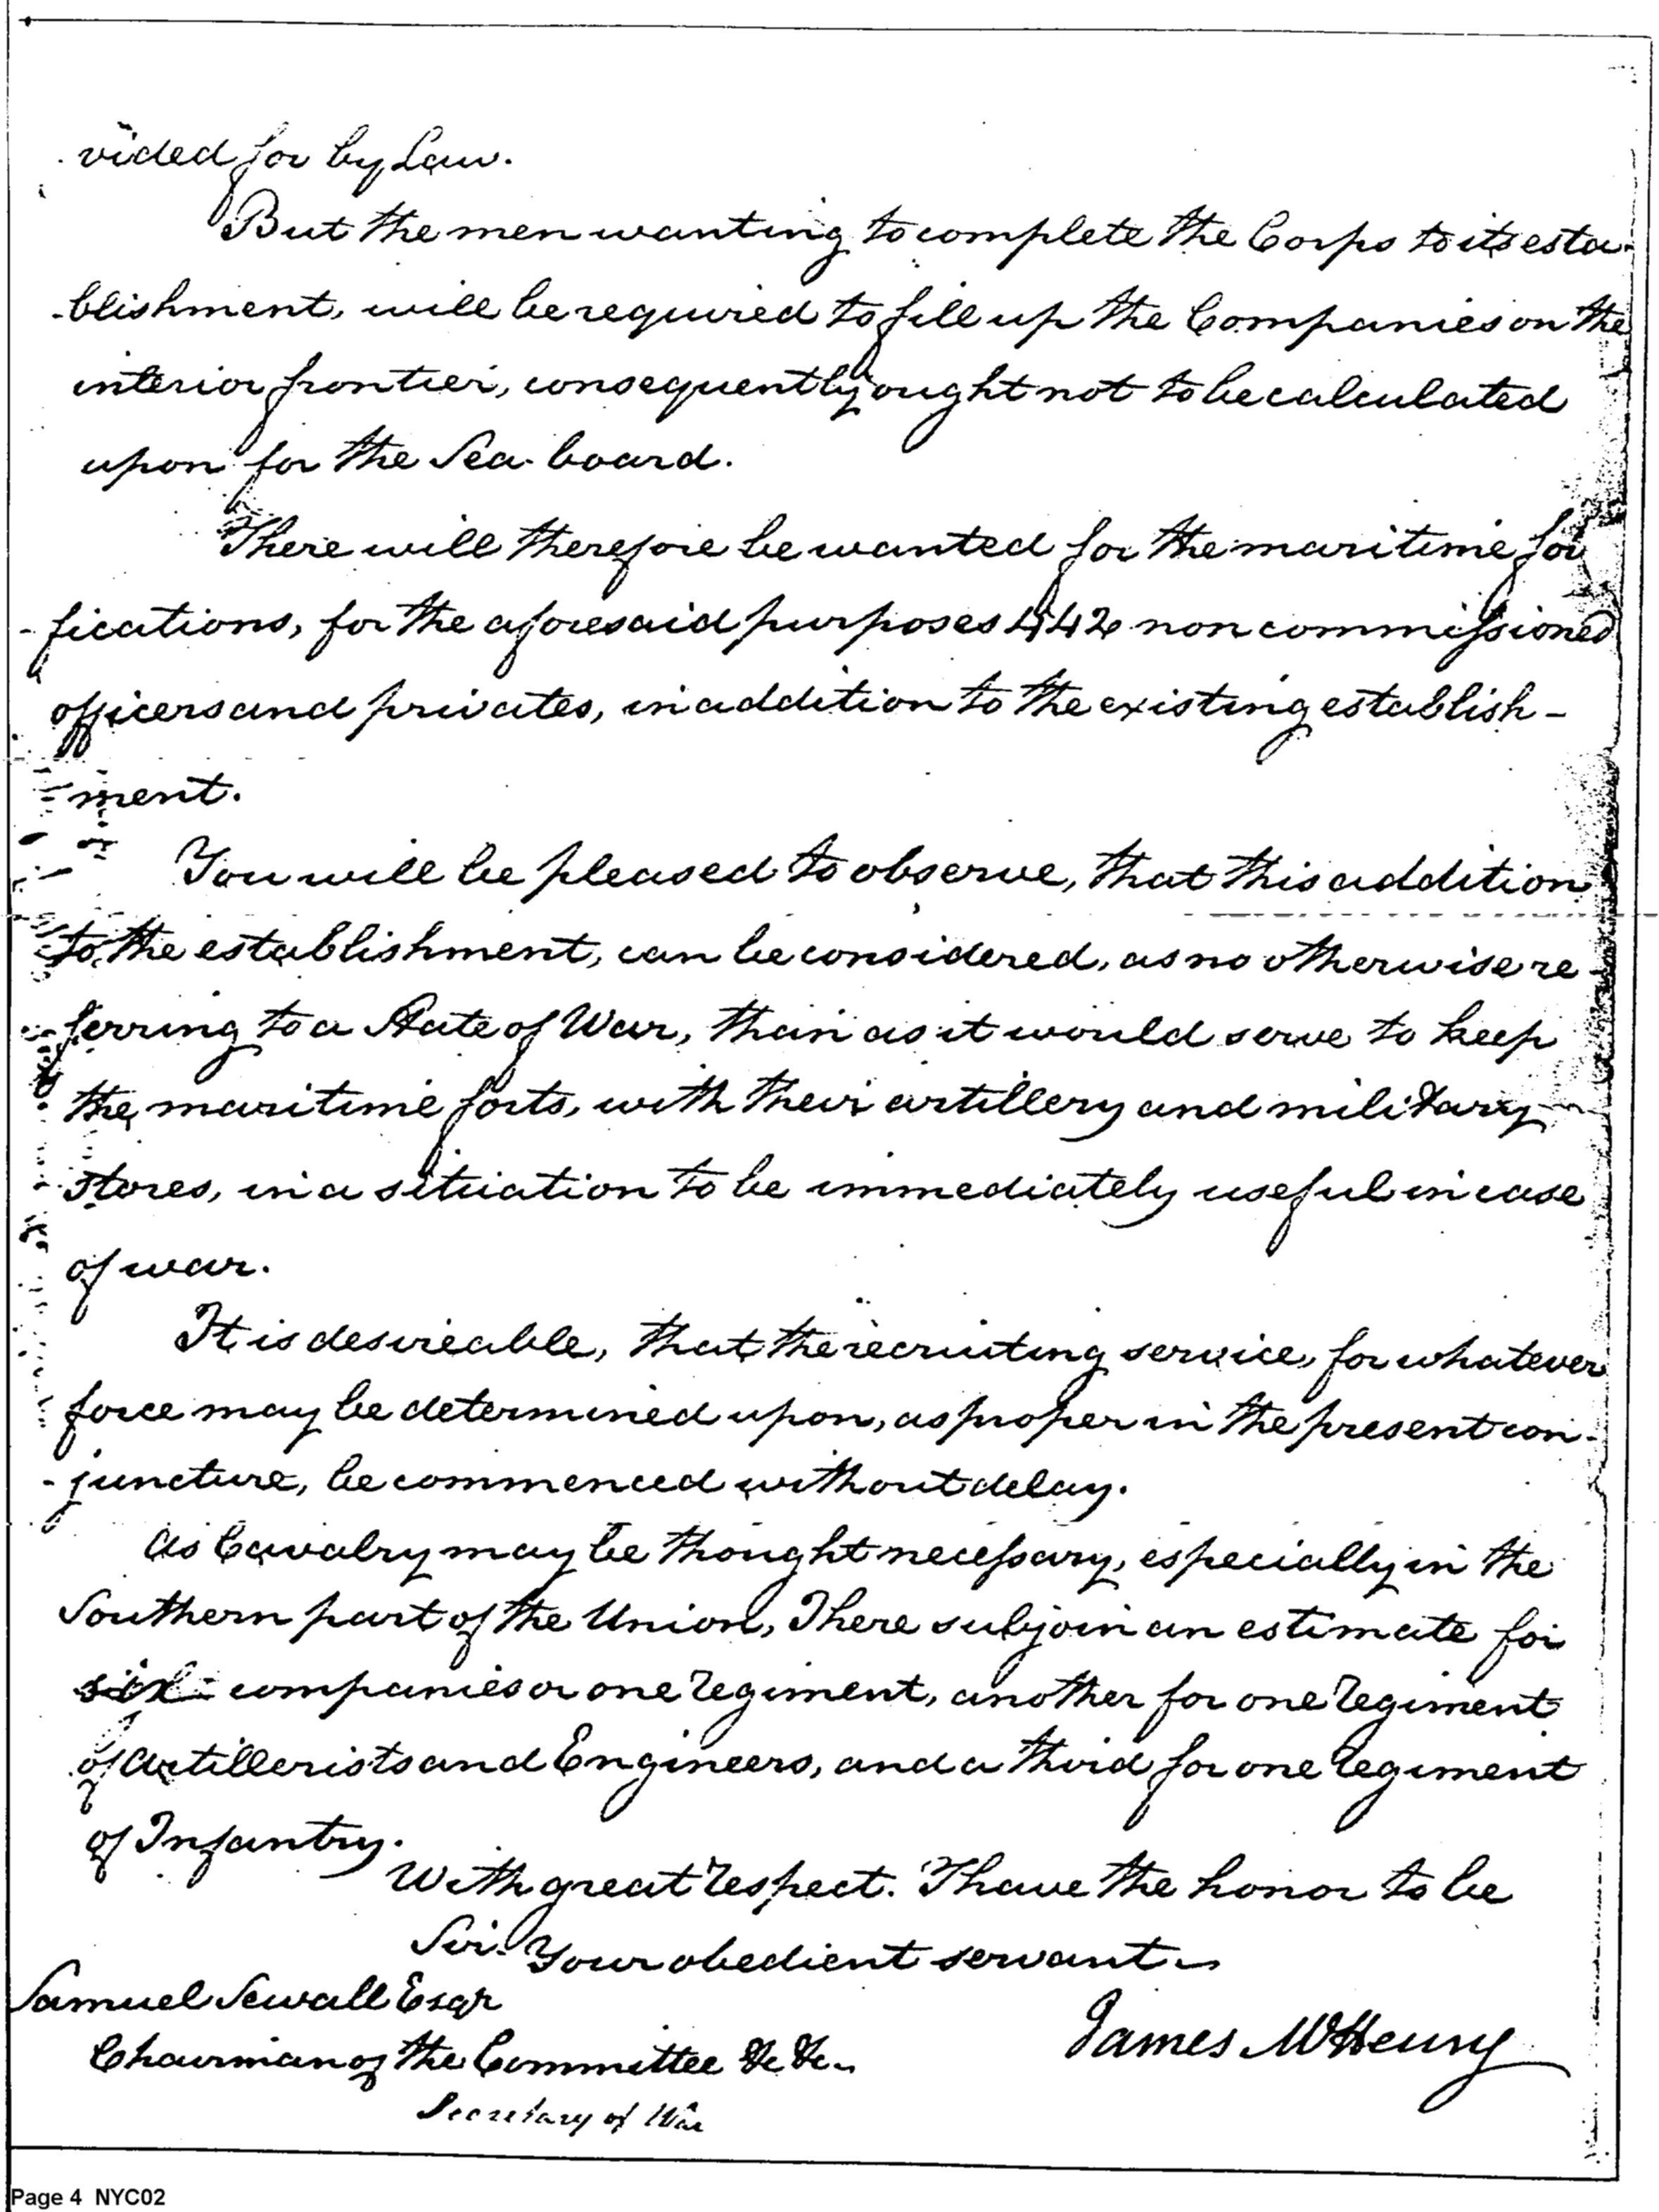 vided for by Law.
But the men wanting to complete the Corps to its esta-
-blishment, will be required to fill up the Companies on the
interior frontier, consequently ought not to be calculated
upon for the Sea-board.
There will therefore be wanted for the maritime for
-fications, for the aforesaid purposes 442 non commissioned
officers and privates, in addition to the existing establish-
-ment.
You will be pleased to observe, that this addition
to the establishment, can be considered, as no otherwise re-
-ferring to a State of War, than as it would serve to keep
the maritime forts, with their artillery and military
stores, in a situation to be immediately useful in case
of war.
It is desireable, that the recruiting service, for whatever
force may be determined upon, as proper in the present con-
-juncture, be commenced without delay.
As Cavalry may be thought necessary, especially in the
Southern part of the Union, I here subjoin an estimate for
six companies or one regiment, another for one regiment
of Artillerists and Engineers, and a third for one regiment
of Infantry.
With great respect. I have the honor to be
Sir. Your obedient servant
Samuel Sewall Esqr
James McHenry
Chairman of the Committee &c &c
Secretary of War
Page 4 NYC02